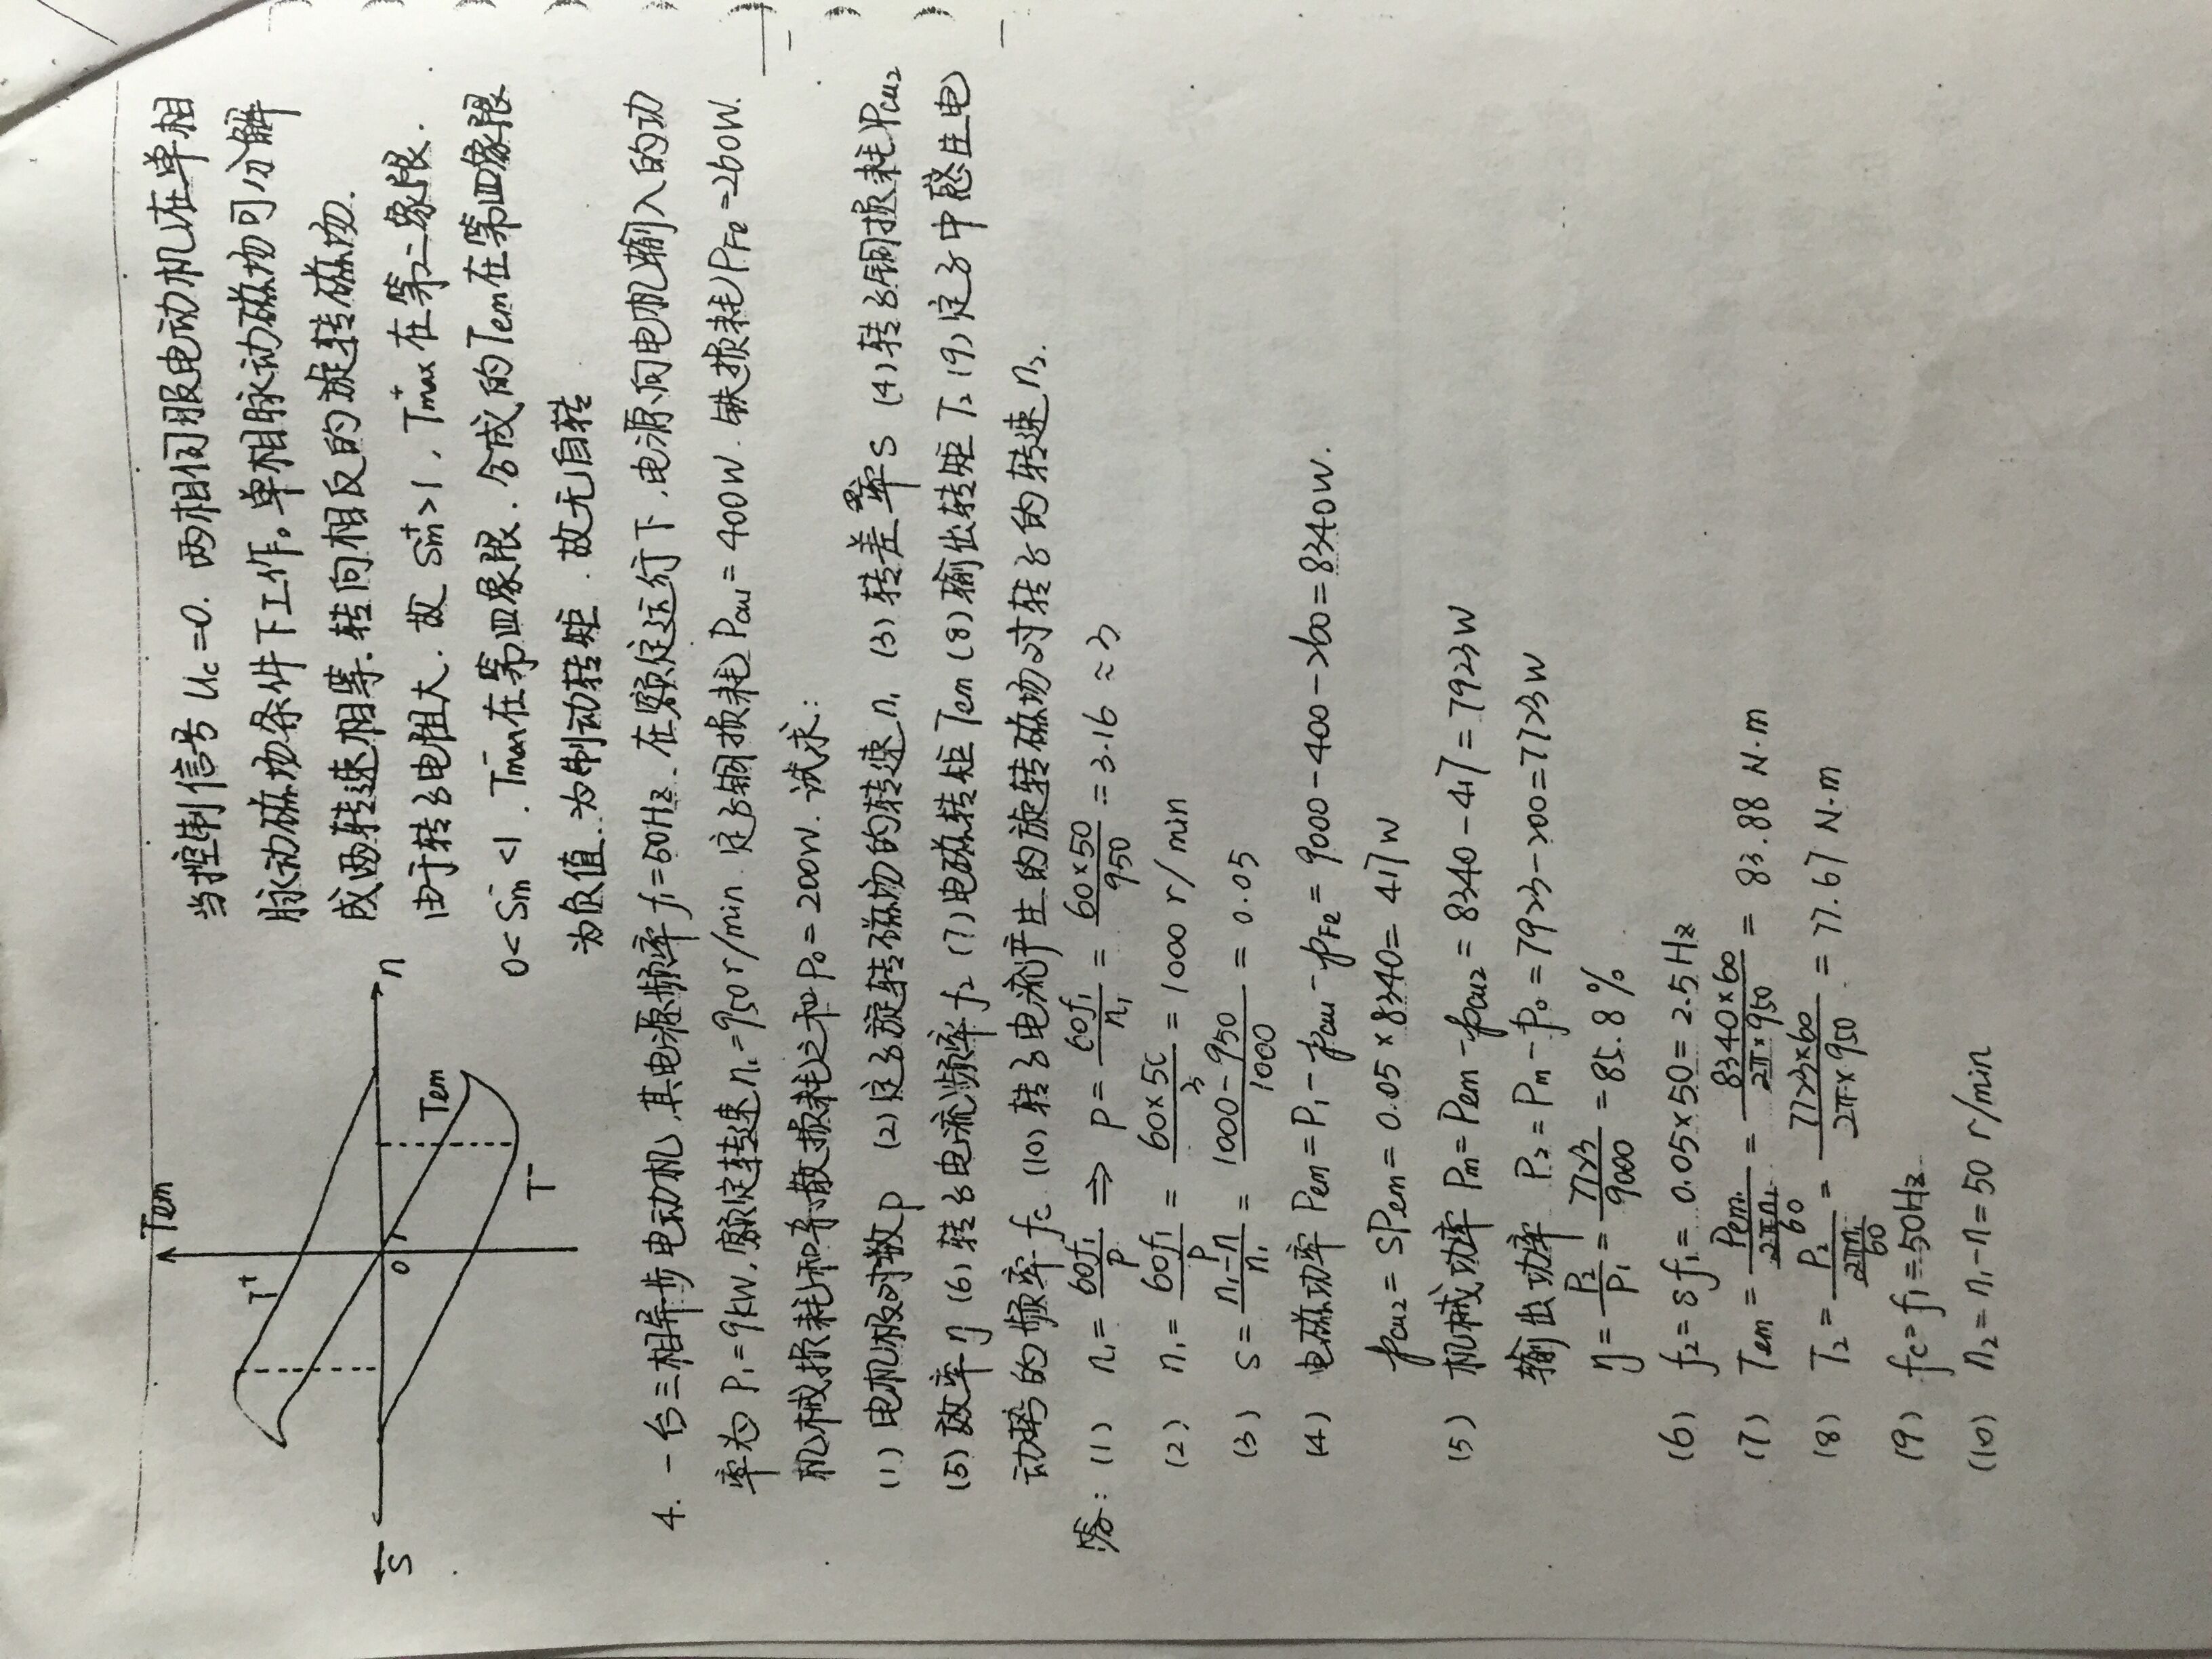 Tem
T⁺
S
0
1
n
Tem
T⁻
当控制信号 Uc=0. 两相伺服电动机在单相
脉动磁场条件下工作。单相脉动磁场可分解
成两转速相等.转向相反的旋转磁场.
由于转子电阻大.故 Sm⁺>1, Tmax⁺ 在第二象限.
0<Sm⁻<1. Tmax⁻在第四象限.合成的Tem在第四象限
为负值.为制动转矩.故无自转
4. 一台三相异步电动机,其电源频率f₁=50Hz.在额定运行下,电源向电机输入的功
率为 P₁=9kW,额定转速n₁=950r/min 定子铜损耗Pcu1=400W.铁损耗PFe=260W.
机械损耗和杂散损耗之和P₀=200W.试求:
(1) 电机极对数p (2)定子旋转磁场的转速n₁ (3)转差率S (4)转子铜损耗Pcu2
(5)效率η (6)转子电流频率f₂ (7)电磁转矩Tem (8)输出转矩T₂ (9)定子中感生电
动势的频率fc (10)转子电流产生的旋转磁场对转子的转速n₂.
答: (1) n₁= 60f₁/p ⇒ p= 60f₁/n₁ = 60×50/950 =3.16 ≈3
(2) n₁= 60f₁/p = 60×50/3 = 1000 r/min
(3) S= n₁-n/n₁ = 1000-950/1000 = 0.05
(4) 电磁功率 Pem=P₁-pcu1-pFe= 9000-400-260=8340W.
pcu2=SPem=0.05×8340= 417W
(5) 机械功率 Pm=Pem-pcu2=8340-417=7923W
输出功率 P₂=Pm-p₀=7923-200=7723W
η= P₂/P₁ = 7723/9000 =85.8%
(6) f₂=sf₁= 0.05×50= 2.5Hz
(7) Tem= Pem./(2πn₁/60) = 8340×60/2π×950 = 83.88 N·m
(8) T₂= P₂/(2πn₁/60) = 7723×60/2π×950 = 77.67 N·m
(9) fc=f₁=50Hz
(10) n₂=n₁-n=50 r/min